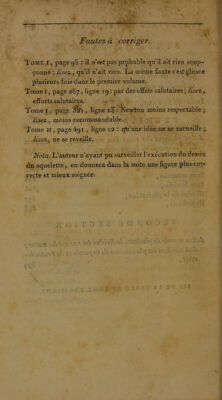 Fautes à corriger.
Tome I, page 98 : il n'est pas probable qu'il ait rien soup-
çonné ; lisez, qu'il n'ait rien. La même faute s'est glissée
plusieurs fois dans le premier volume.
Tome I, page 267, ligne 19 : par des effets salutaires ; lisez,
efforts salutaires.
Tome I, page ligne 15 : Newton moins respectable ;
lisez, moins recommandable.
Tome II, page 691, ligne 12 : qu'une idée ne se recueille ;
lisez, ne se réveille.
Nota. L'auteur n'ayant pu surveiller l'exécution du dessin
du squelette, en donnera dans la suite une figure plus cor-
recte et mieux soignée.